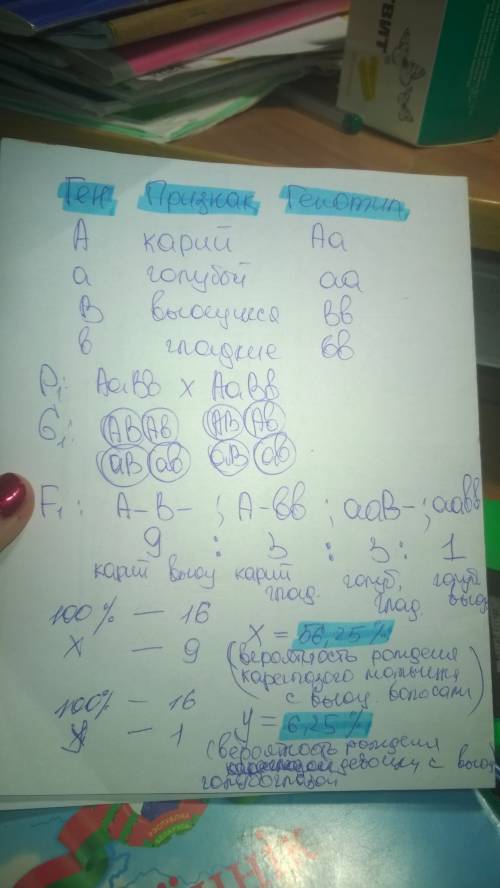 Ген Признак Генотип
А карий Аа
а голубой аа
В вьющиеся Вв
в гладкие вв
P₁: АаВв х АаВв
G₁: АВ Ав АВ Ав
аВ ав аВ ав
F₁: А-В- ; А-вв ; ааВ- ; аавв
9 : 3 : 3 : 1
карий вьющ карий глад. голуб, глад. голуб вьющ
100% — 16
х — 9
х = 56,25%
(вероятность рождения
кареглазого мальчика
с вьющ. волосами)
100% — 16
у — 1
у = 6,25%
(вероятность рождения
девочки с вьющ
голубоглазой
РЕСПУБЛИКА
БЕЛАРУСЬ